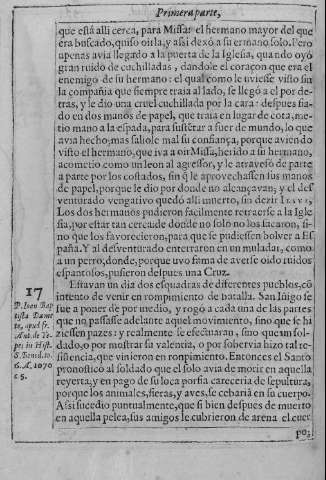 Primera parte,
que està alli cerca, para Missa: el hermano mayor del que
era buscado, quiso oirla, y assi dexò a su ermano solo. Pero
apenas avia llegado a la puerta de la Iglesia, quando oyò
gran ruido de cuchilladas, dandole el coraçon que era el
enemigo de su hermano: el qual como le uviesse visto sin
la compañia que siempre traia al lado, se llegò a el por de-
tras, y le dio una cruel cuchillada por la cara: despues fia-
do en dos manos de papel, que traia en lugar de cota, me-
tio mano a la espada, para sustetar a fuer de mundo, lo que
avia hecho; mas saliole mal su confiança, porque aviendo
visto el hermano, que iva a oir Missa, herido a su hermano,
acometio como un leon al agressor, y le atravesò de parte
a parte por los costados, sin q̃ le aprovechassen sus manos
de papel, porque le dio por donde no alcançavan; y el des
venturado vengativo quedò alli muerto, sin dezir IESVS,
Los dos hermanos pudieron facilmente retraerse a la Igle
sia, por estar tan cerca; de donde no solo no los sacaron, si-
no que los favorecieron, para que se pudiessen bolver a Es
paña. Y al desventurado enterraron en un muladar, como
a un perro, donde, porque uvo fama de averse oido ruidos
espantosos, pusieron despues una Cruz.
17
P. Iuan Bap
tista Dame
te, apud fr.
Ant. de Ye-
pes in Hist.
S. Bened. to.
6. A. 1070
c. 5.
Estavan un dia dos esquadras de diferentes pueblos, cõ
intento de venir en rompimiento de batalla. San Iñigo se
fue a poner de por medio, y rogò a cada una de las partes
que no passasse adelante aquel movimiento, sino que le hi
ziessen pazes: y realmente se efectuaran, sino que un sol-
dado, o por mostrar su valentia, o por sobervia hizo tal re-
sistencia, que vinieron en ronpimiento. Entonces el Santo
pronosticò al soldado que el solo avia de morir en aquella
reyerta, y en pago de su loca porfia careceria de sepultura,
porque los animales, fieras, y aves, se cebariã en su cuerpo.
Assi sucedio puntualmente, que si bien despues de muerto
en aquella pelea, sus amigos le cubrieron de arena el cuer
po;